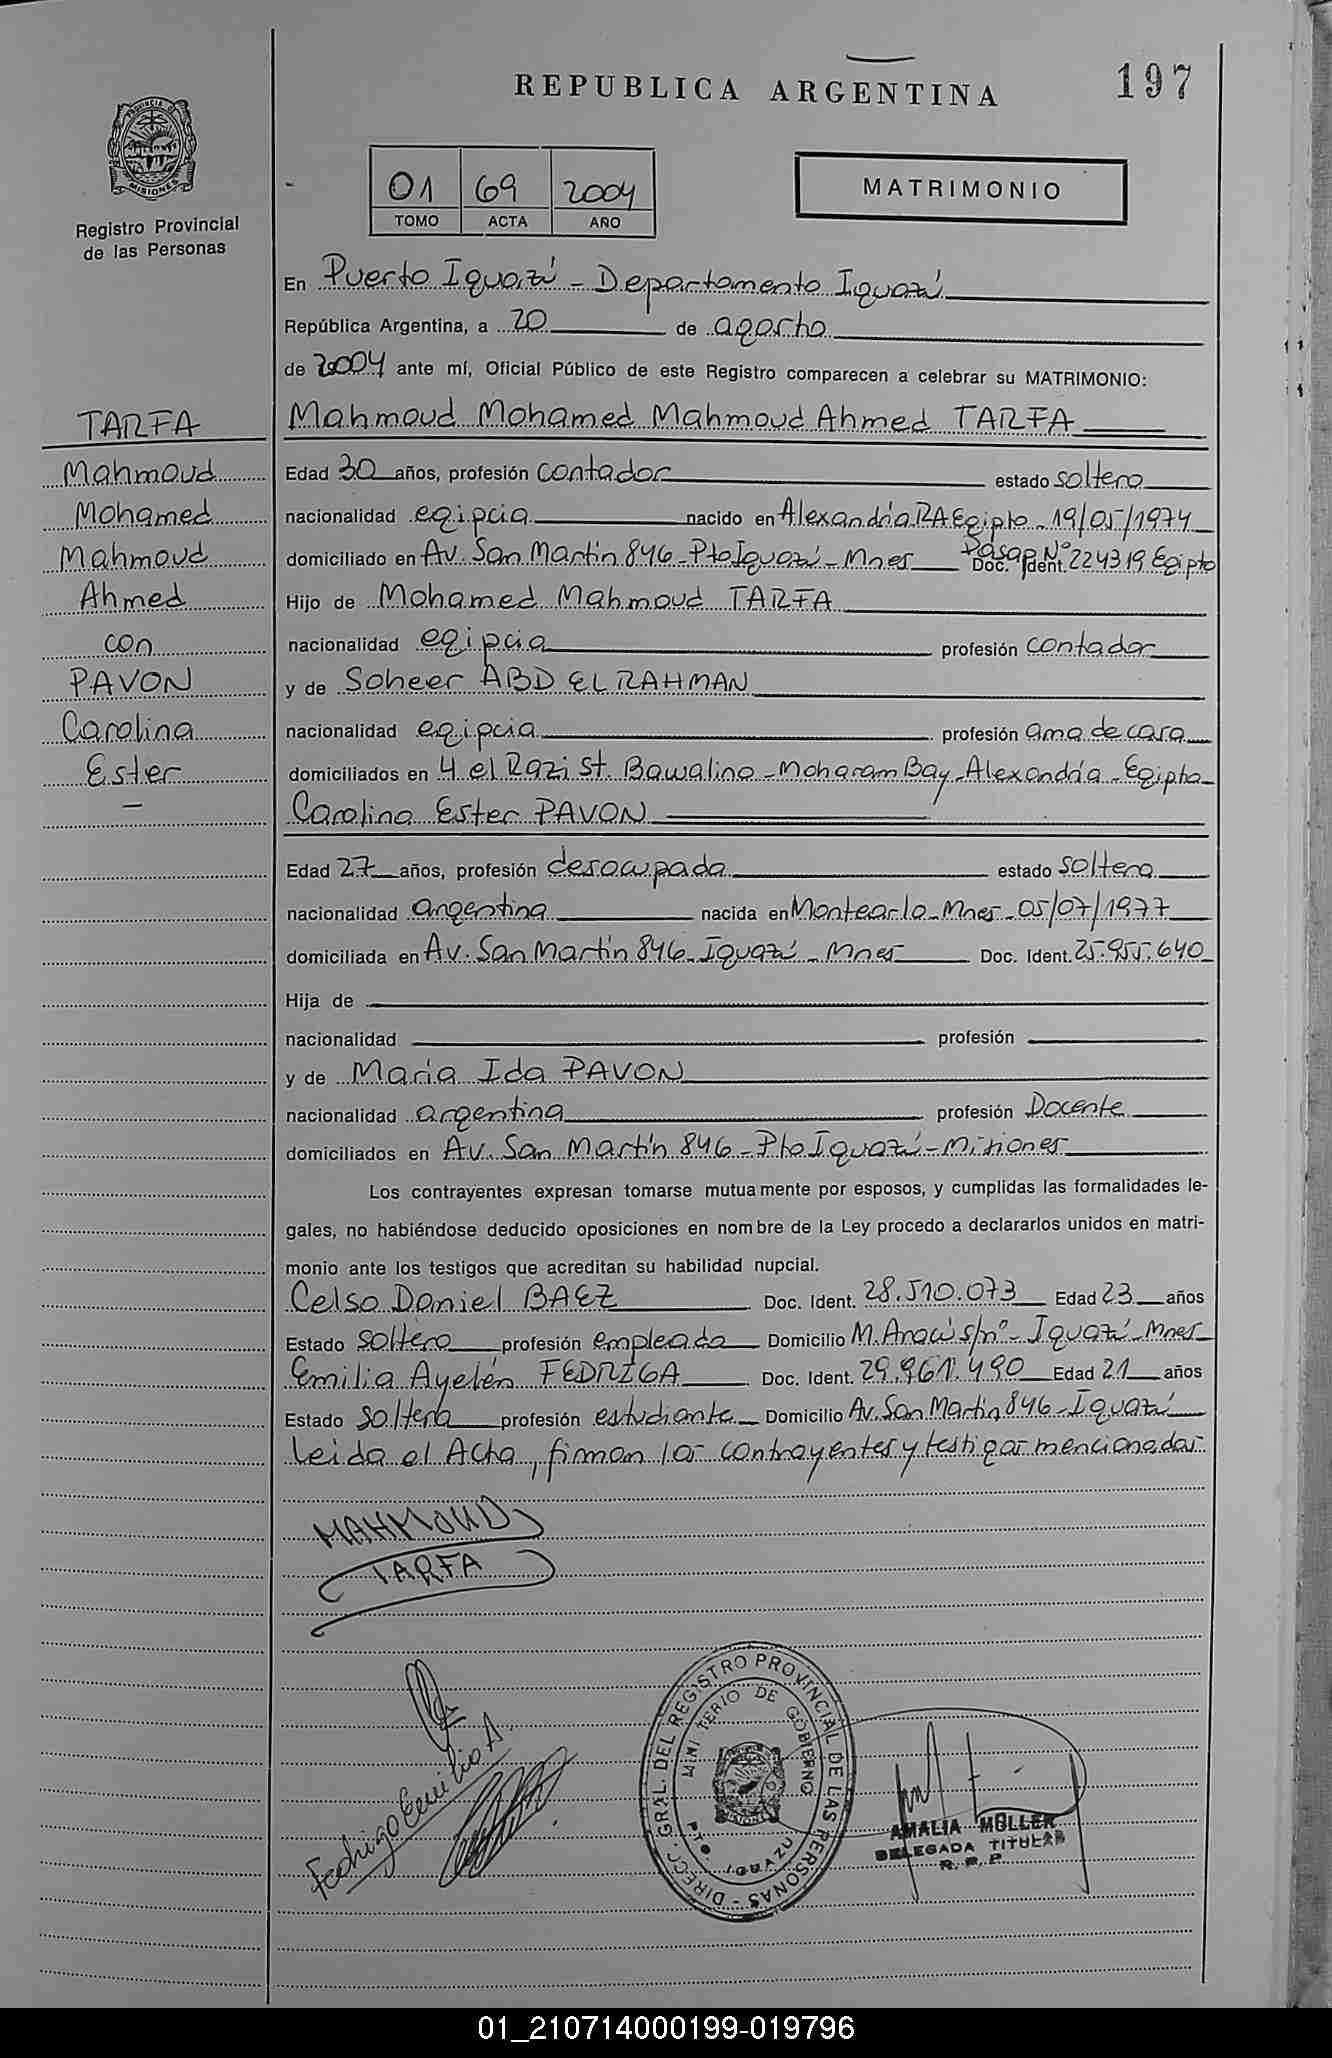 REPUBLICA ARGENTINA
197
PROVINCIA DE MISIONES
Registro Provincial
de las Personas
01 69 2004
TOMO ACTA AÑO
MATRIMONIO
En Puerto Iguazú - Departamento Iguazú
República Argentina, a 20 de agosto
de 2004 ante mí, Oficial Público de este Registro comparecen a celebrar su MATRIMONIO:
TARFA
Mahmoud
Mohamed
Mahmoud
Ahmed
con
PAVON
Carolina
Ester
Mahmoud Mohamed Mahmoud Ahmed TARFA
Edad 30 años, profesión contador estado soltero
nacionalidad egipcia nacido en Alexandría RA Egipto - 19/05/1974
domiciliado en Av. San Martín 846 - Pto Iguazú - Mnes Doc. Ident. Pasap. N° 224319 Egipto
Hijo de Mohamed Mahmoud TARFA
nacionalidad egipcia profesión contador
y de Soheer ABD EL RAHMAN
nacionalidad egipcia profesión ama de casa
domiciliados en 4 el Razi St. Bawalino - Moharam Bay - Alexandría - Egipto
Carolina Ester PAVON
Edad 27 años, profesión desocupada estado soltera
nacionalidad argentina nacida en Montecarlo - Mnes - 05/07/1977
domiciliada en Av. San Martín 846 - Iguazú - Mnes Doc. Ident. 25.955.640
Hija de
nacionalidad profesión
y de Maria Ida PAVON
nacionalidad argentina profesión Docente
domiciliados en Av. San Martín 846 - Pto Iguazú - Misiones
Los contrayentes expresan tomarse mutuamente por esposos, y cumplidas las formalidades le-
gales, no habiéndose deducido oposiciones en nombre de la Ley procedo a declararlos unidos en matri-
monio ante los testigos que acreditan su habilidad nupcial.
Celso Daniel BAEZ Doc. Ident. 28.510.073 Edad 23 años
Estado soltero profesión empleado Domicilio M. Araců s/n° - Iguazú - Mnes
Emilia Ayelén FEDRIGA Doc. Ident. 29.961.490 Edad 21 años
Estado soltera profesión estudiante Domicilio Av. San Martín 846 - Iguazú
Leida el Acta, firman los contrayentes y testigos mencionados
MAHMOUD
TARFA
Fedriga Emilia A.
DIRECC. GRAL. DEL REGISTRO PROVINCIAL DE LAS PERSONAS -
MINITERIO DE GOBIERNO
PTO. IGUAZU
AMALIA MÜLLER
DELEGADA TITULAR
R. P. P.
01_210714000199-019796